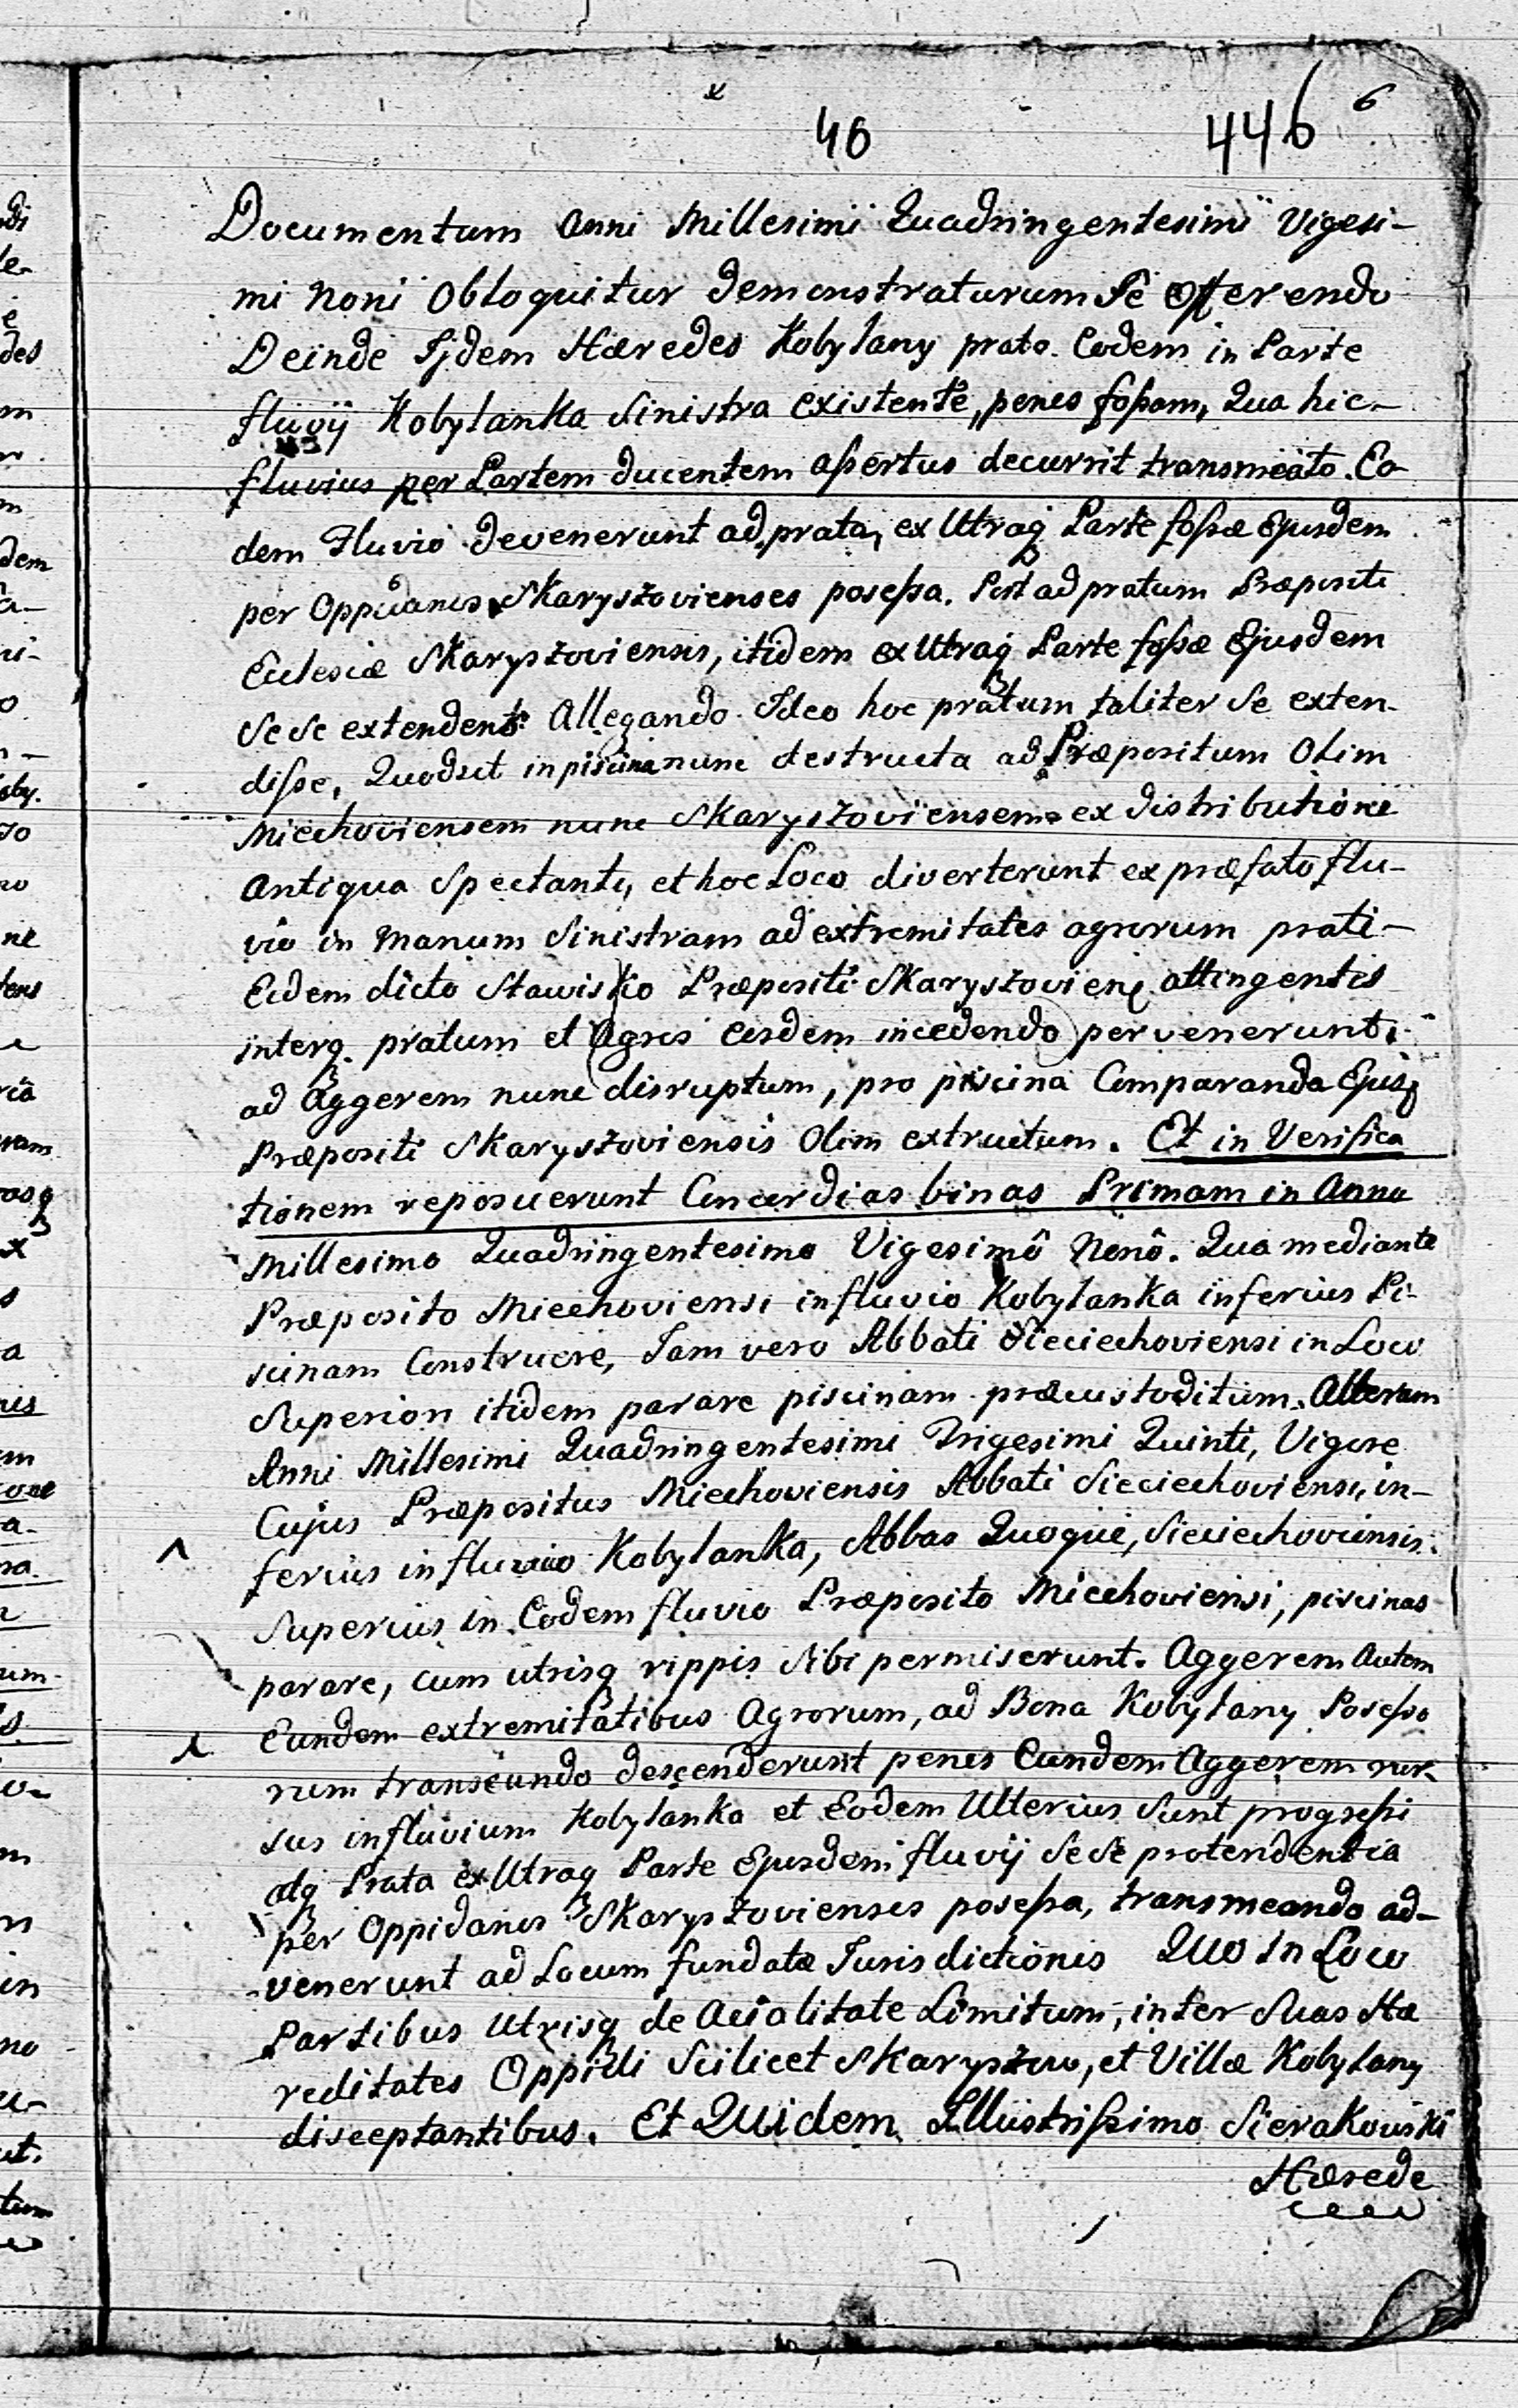 46 446 6
Documentum Anni Millesimi Quadringentesimi Vigesi-
mi Noni Obloquitur demonstraturum Se offerendo
Deinde Ijdem Hæredes Kobylany prato Eodem in Parte
fluvij Kobylanka Sinistra existente, penes foßam, Qua hic-
fluvius per Partem ducentem aßertus decurrit transmeato. Eo
dem Fluvio devenerunt ad prata, ex Utraq Parte foßæ Ejusdem
per Oppidanos Skaryszovienses poseßa. Post ad pratum Præpositi
Ecclesiæ Skaryszoviensis, itidem ex Utraq Parte foßæ Ejusdem
Se Se extendent: Allegando Ideo hoc pratum taliter Se exten-
diße, Quod sit in piscina nunc destructa ad Præpositum Olim
Miechoviensem nunc Skaryszoviensem ex distributione
Antiqua Spectante, et hoc Loco diverterunt ex præfato flu-
vio in Manum Sinistram ad extremitates agrorum prati-
Eidem dicto Stawisko Præpositi Skaryszovien attingentis
interq. pratum et Agros eosdem incedendo pervenerunt
ad Aggerem nunc disruptum, pro piscina Comparanda Ejusq
Præpositi Skaryszoviensis Olim extructum. Et in Verifica
tionem reposuerunt Concordias binas Primam in Anno
Millesimo Quadringentesimo Vigesimô Nonô. Qua mediante
Præposito Miechoviensi in fluvio Kobylanka inferius Pi-
scinam Construere, Jam vero Abbati Sieciechoviensi in Loco
Superiori itidem parare piscinam præcustoditum. Alteram
Anni Millesimi Quadringentesimi Trigesimi Quinti, Vigore
Cujus Præpositus Miechoviensis Abbati Sieciechoviensi, in-
ferius in fluvio Kobylanka, Abbas Quoque, Sieciechoviensis
Superius in Eodem fluvio Præposito Miechoviensi, piscinas
parare, cum utrisq rippis Sibi permiserunt. Aggerem Autem
Eundem extremitatibus Agrorum, ad Bona Kobylany Poseßo
rum transeundo descenderunt penes Eundem Aggerem rur-
sus in fluvium Kobylanka et Eodem Ulterius Sunt progreßi
adq Prata ex Utraq Parte Ejusdem fluvij Se Se protendentia
per Oppidanos Skaryszovienses poseßa, transmeando ad-
venerunt ad Locum fundatæ Jurisdictionis Quo in Loco
Partibus Utrisq de Acialitate Limitum, inter Suas Hæ
reditates Oppidi Scilicet Skaryszow, et Villæ Kobylany
disceptantibus. Et Quidem Illustrißimo Sierakowski
Hærede